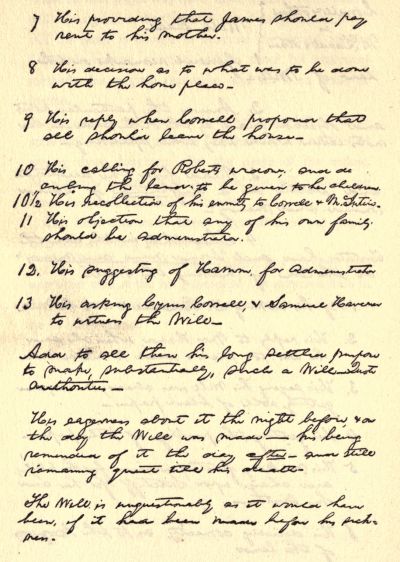 7 His providing that James should pay
rent to his mother.
8 His decision as to what was to be done
with the home place—
9 His reply when Correll proposed that
all should leave the house—
10 His calling for Roberts widow, and de
scribing the land to be given to her children.
10½ His recollection of his enmity to Correll & McIntire.
11 His objection that any of his own family
should be administrator.
12. His suggesting of Hamm, for Administrator
13 His asking Cyrus Correll, & Samuel Havener
to witness the Will—
Add to all these his long settled purpose
to make, substantially, such a Will—
authorities—
His eagerness about it the night before, & on
the day the Will was made — his being
reminded of it the day after — and still
remaining quiet till his death—
The Will is unquestionably as it would have
been, if it had been made before his sick-
ness.